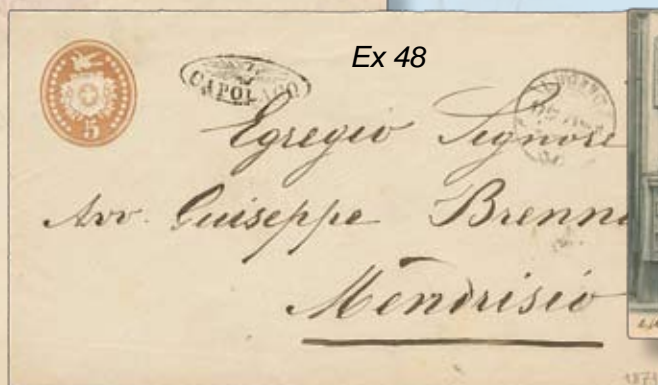 Ex 48
5
CAPOLAGO
Egregio Signore
Avv. Guiseppe Brenni
Mendrisio